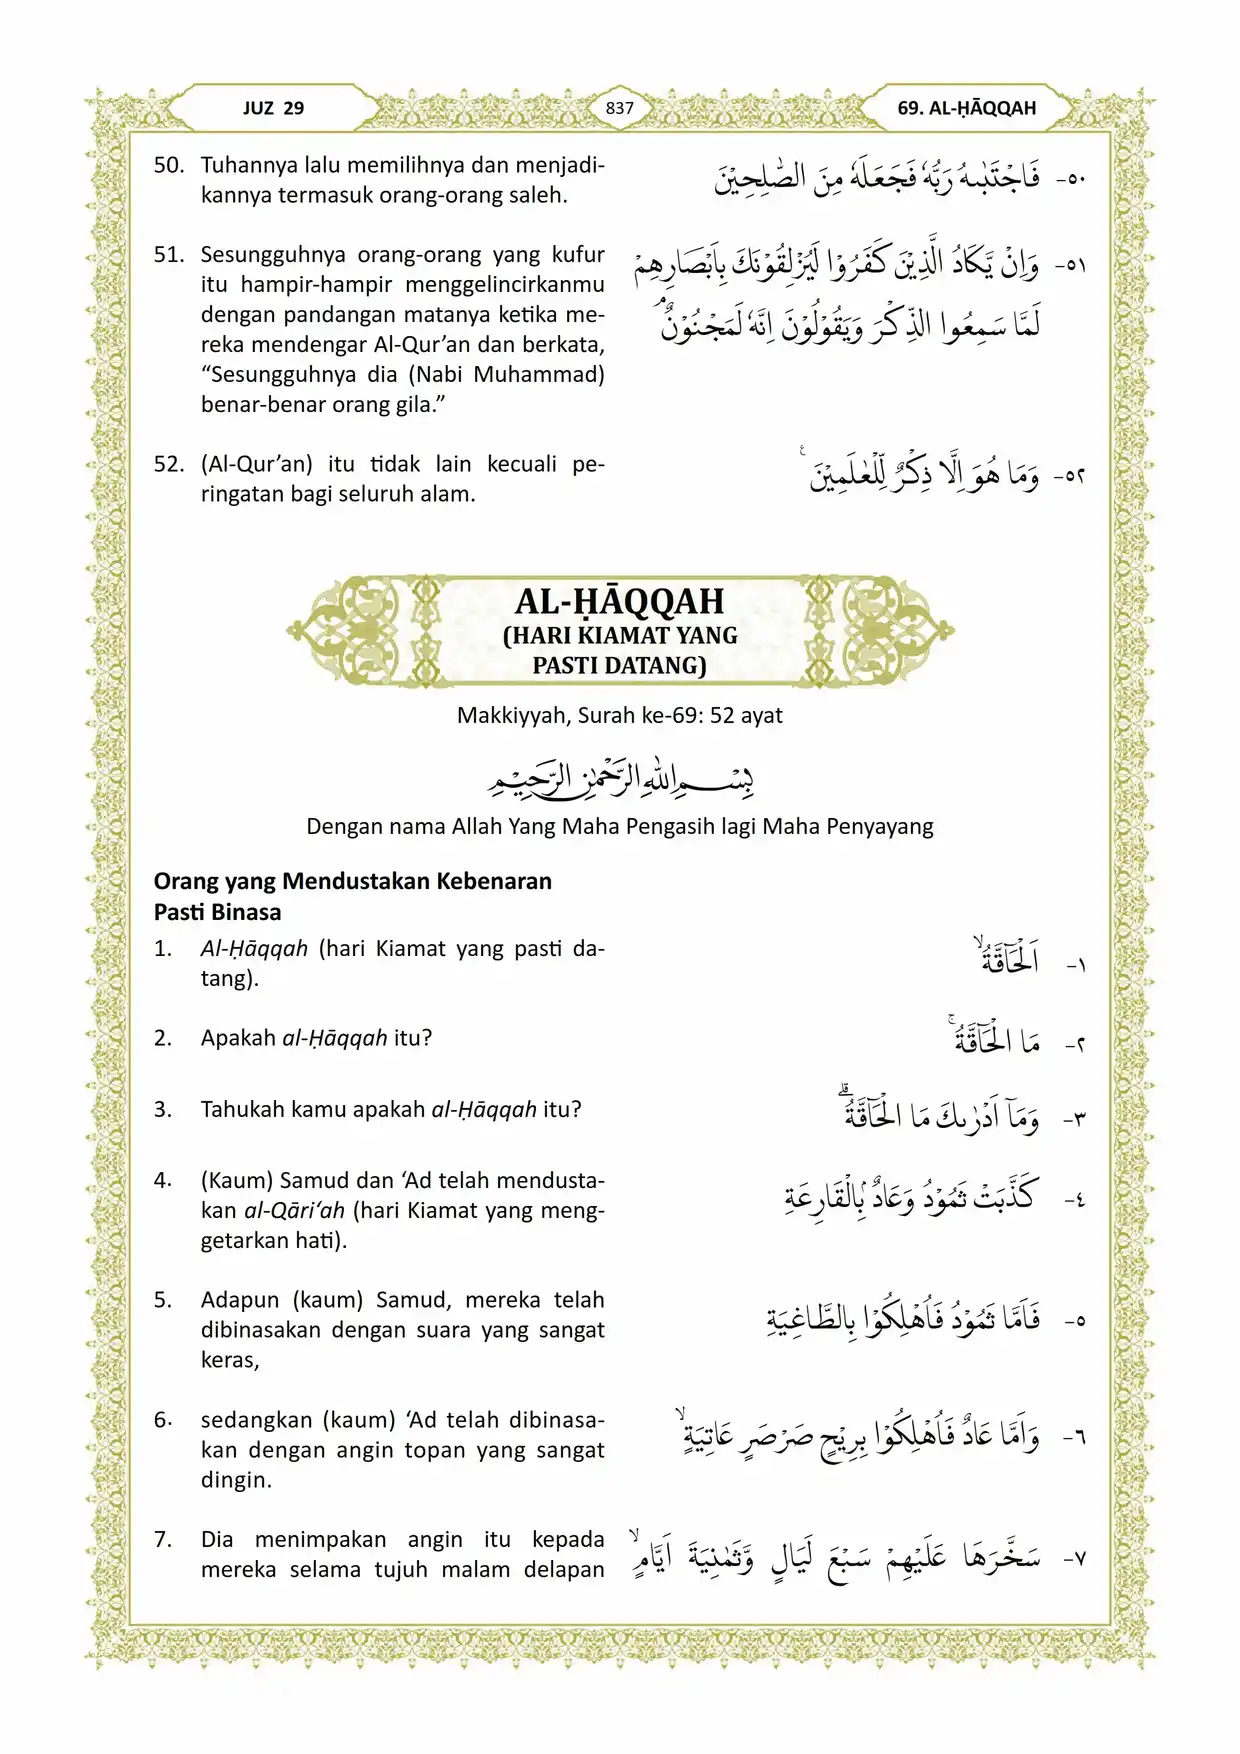 JUZ 29
837
69. AL-ḤĀQQAH
50. Tuhannya lalu memilihnya dan menjadi-
kannya termasuk orang-orang saleh.
٥٠- فَاجْتَبٰىهُ رَبُّهٗ فَجَعَلَهٗ مِنَ الصّٰلِحِيْنَ
51. Sesungguhnya orang-orang yang kufur
itu hampir-hampir menggelincirkanmu
dengan pandangan matanya ketika me-
reka mendengar Al-Qur’an dan berkata,
“Sesungguhnya dia (Nabi Muhammad)
benar-benar orang gila.”
٥١- وَاِنْ يَّكَادُ الَّذِيْنَ كَفَرُوْا لَيُزْلِقُوْنَكَ بِاَبْصَارِهِمْ
لَمَّا سَمِعُوا الذِّكْرَ وَيَقُوْلُوْنَ اِنَّهٗ لَمَجْنُوْنٌ ۘ
52. (Al-Qur’an) itu tidak lain kecuali pe-
ringatan bagi seluruh alam.
٥٢- وَمَا هُوَ اِلَّا ذِكْرٌ لِّلْعٰلَمِيْنَ ࣖ
AL-ḤĀQQAH
(HARI KIAMAT YANG
PASTI DATANG)
Makkiyyah, Surah ke-69: 52 ayat
بِسْمِ اللّٰهِ الرَّحْمٰنِ الرَّحِيْمِ
Dengan nama Allah Yang Maha Pengasih lagi Maha Penyayang
Orang yang Mendustakan Kebenaran
Pasti Binasa
1. Al-Ḥāqqah (hari Kiamat yang pasti da-
tang).
١- اَلْحَاۤقَّةُ ۙ
2. Apakah al-Ḥāqqah itu?
٢- مَا الْحَاۤقَّةُ ۚ
3. Tahukah kamu apakah al-Ḥāqqah itu?
٣- وَمَآ اَدْرٰىكَ مَا الْحَاۤقَّةُ ۗ
4. (Kaum) Samud dan ‘Ad telah mendusta-
kan al-Qāri‘ah (hari Kiamat yang meng-
getarkan hati).
٤- كَذَّبَتْ ثَمُوْدُ وَعَادٌ ۢبِالْقَارِعَةِ
5. Adapun (kaum) Samud, mereka telah
dibinasakan dengan suara yang sangat
keras,
٥- فَاَمَّا ثَمُوْدُ فَاُهْلِكُوْا بِالطَّاغِيَةِ
6. sedangkan (kaum) ‘Ad telah dibinasa-
kan dengan angin topan yang sangat
dingin.
٦- وَاَمَّا عَادٌ فَاُهْلِكُوْا بِرِيْحٍ صَرْصَرٍ عَاتِيَةٍ ۙ
7. Dia menimpakan angin itu kepada
mereka selama tujuh malam delapan
٧- سَخَّرَهَا عَلَيْهِمْ سَبْعَ لَيَالٍ وَّثَمٰنِيَةَ اَيَّامٍ ۙ